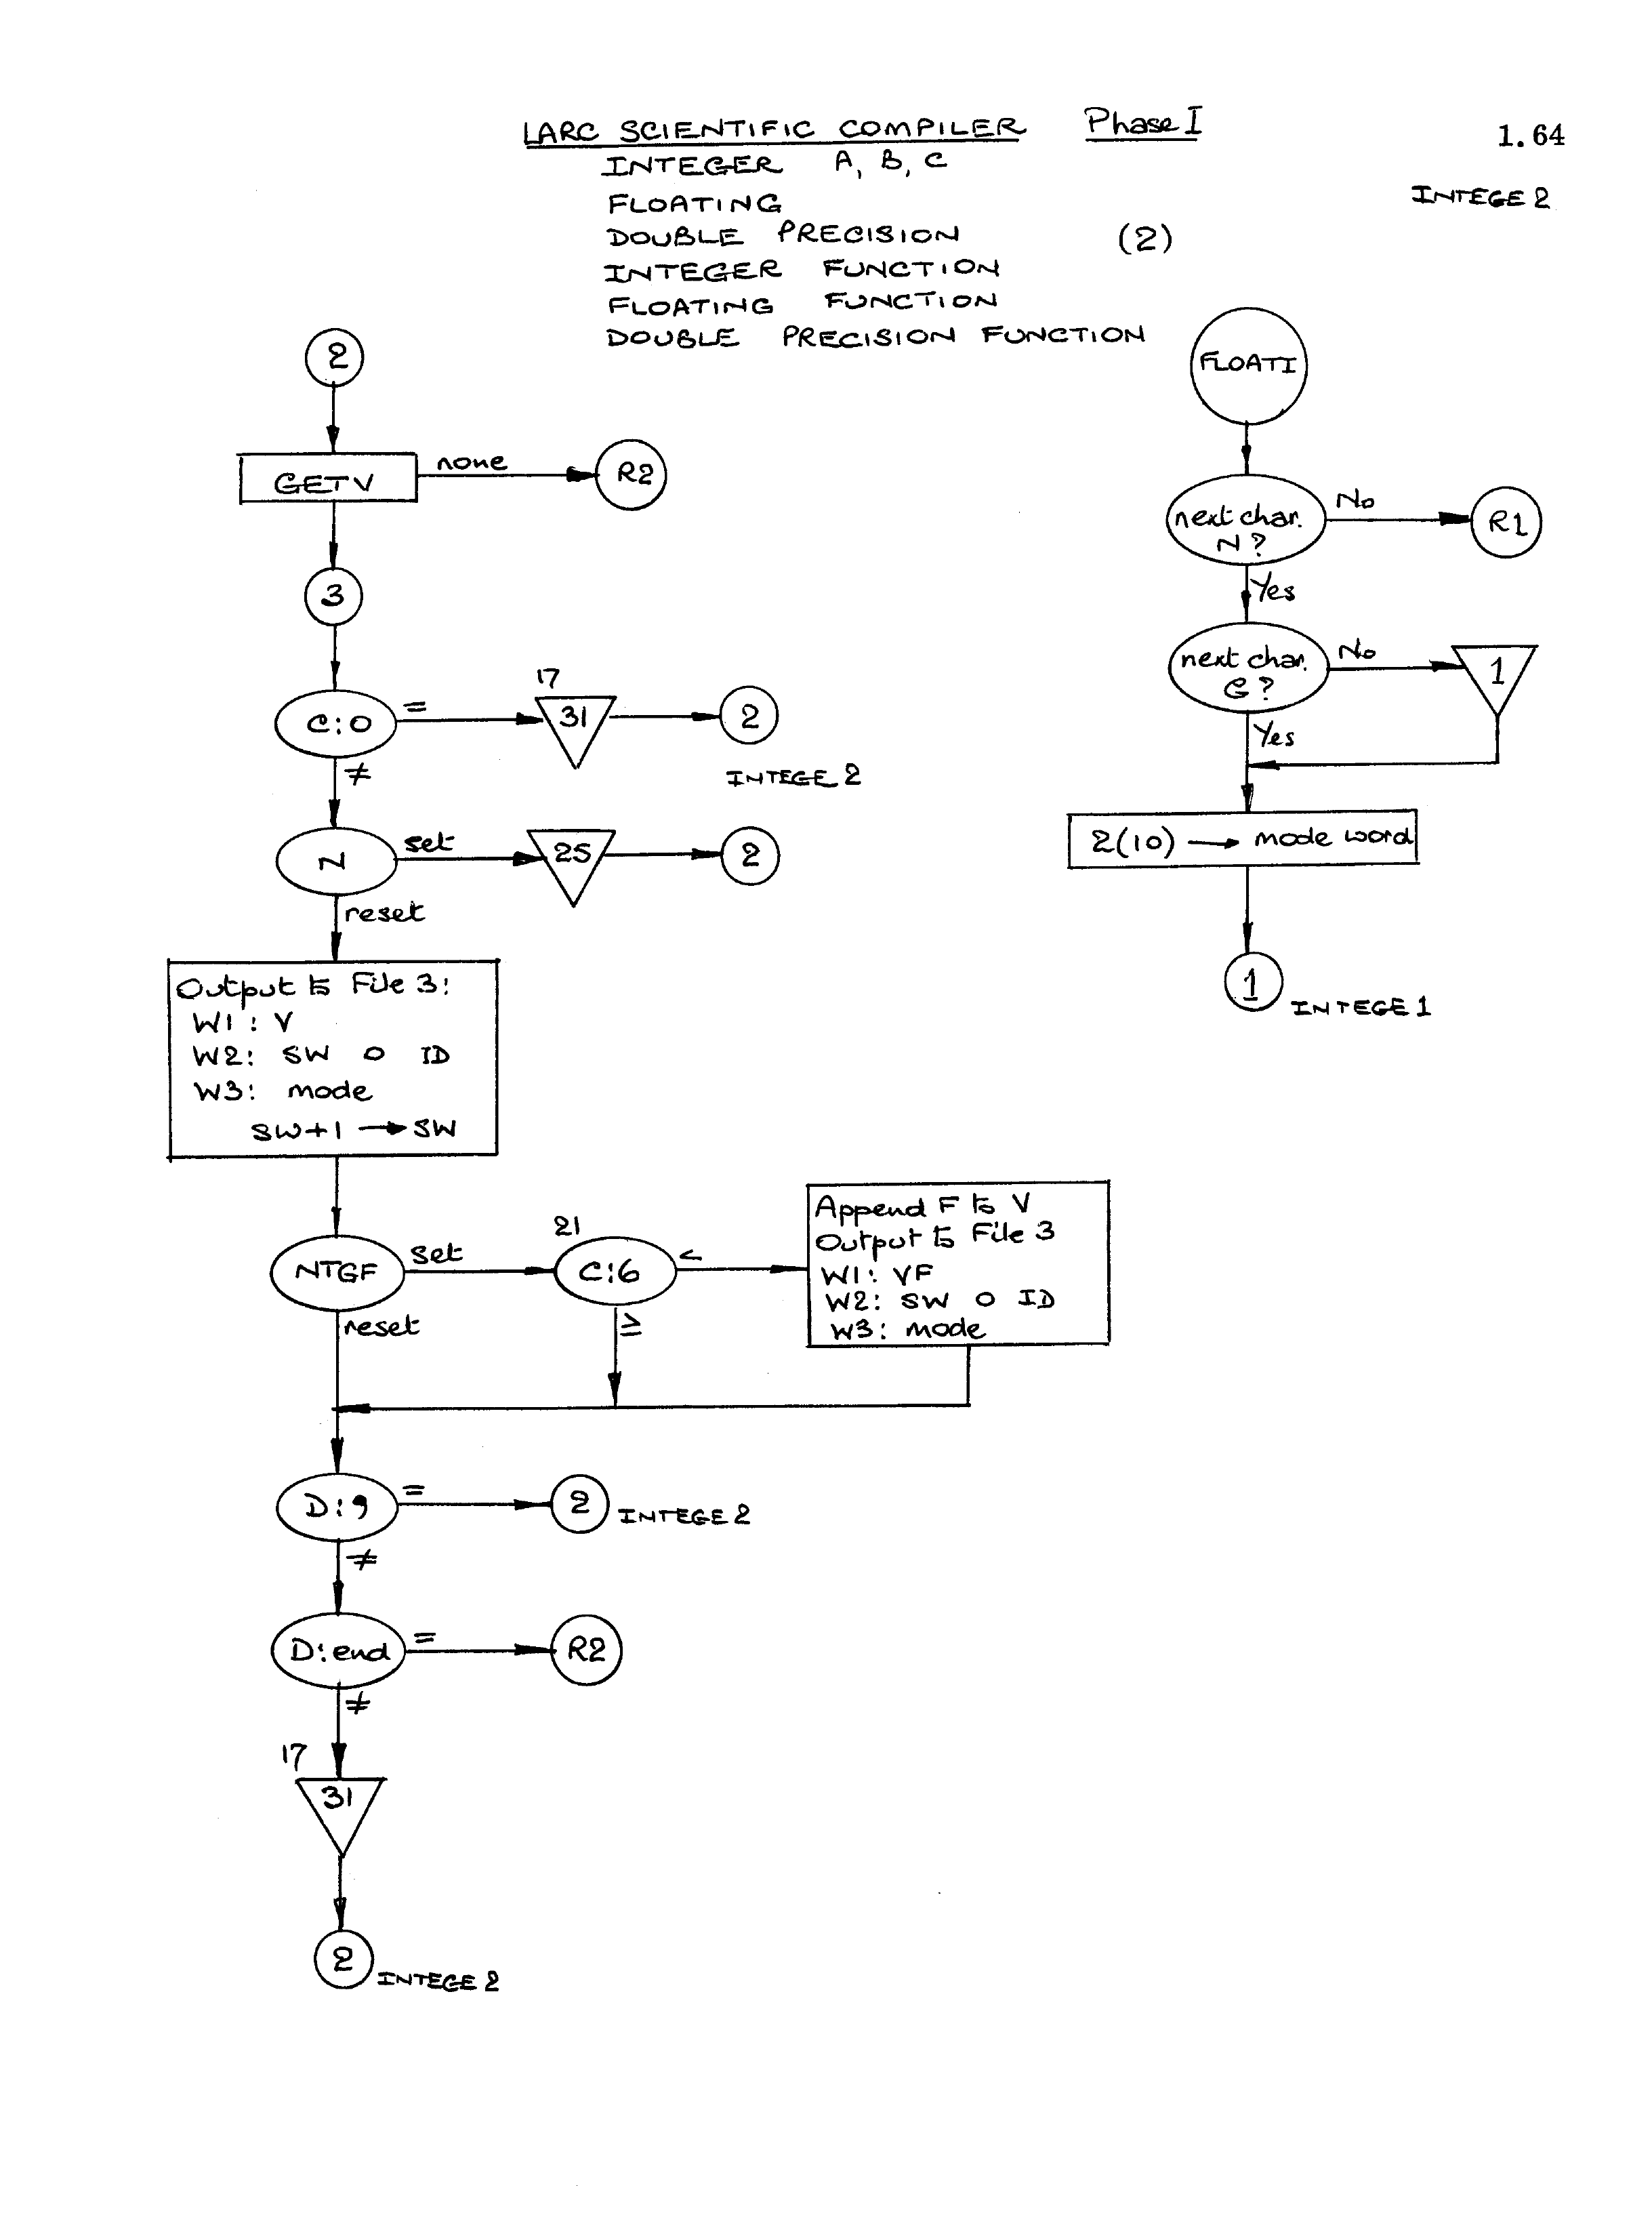 LARC SCIENTIFIC COMPILER Phase I
1.64
INTEGER A, B, C
INTEGE 2
FLOATING
DOUBLE PRECISION (2)
INTEGER FUNCTION
FLOATING FUNCTION
DOUBLE PRECISION FUNCTION
2
GETV
none
R2
3
C:0
=
17
31
2
INTEGE 2
≠
N
set
25
2
reset
Output to File 3:
W1: V
W2: SW 0 ID
W3: mode
SW+1 → SW
NTGF
set
21
C:6
<
Append F to V
Output to File 3
W1: VF
W2: SW 0 ID
W3: mode
≥
reset
D:,
=
2
INTEGE 2
≠
D:end
=
R2
≠
17
31
2
INTEGE 2
FLOATI
next char.
N?
No
R1
Yes
next char.
G?
No
1
Yes
2(10) → mode word
1
INTEGE 1